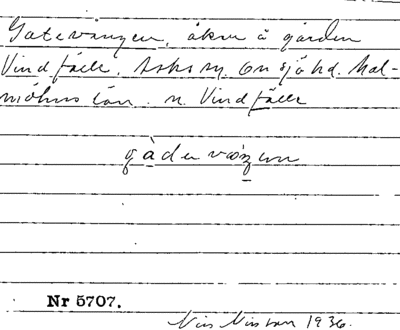 Gatevången, åkrn å gården
Vindfälle, Asks sn. Onsjö hd. Mal-
möhus län. n. Vindfälle
gàdevaŋen
Nr 5707.
Nils Nilsson 1936.